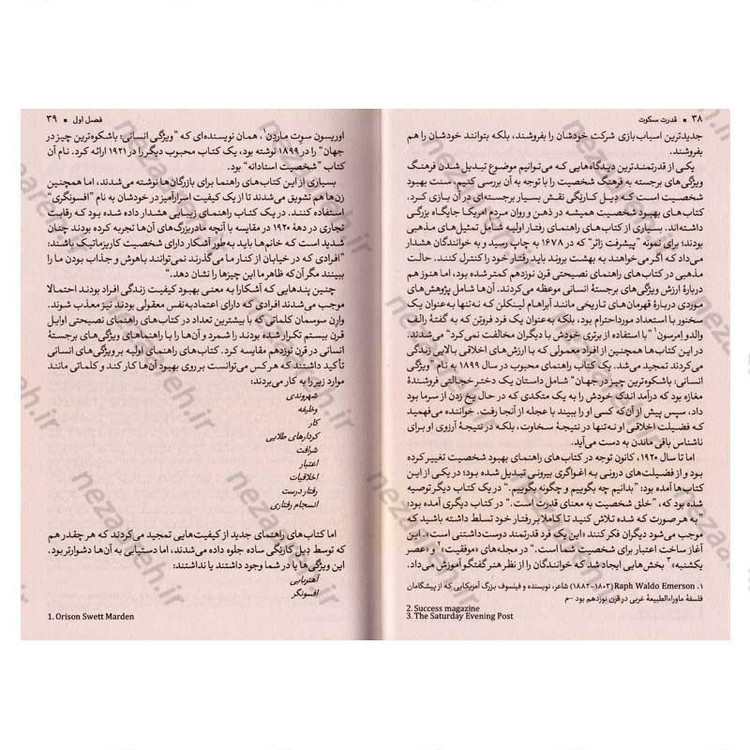 ۳۸ ■ قدرت سکوت
جدیدترین اسباب‌بازی شرکت خودشان را بفروشند، بلکه بتوانند خودشان را هم
بفروشند.
یکی از قدرتمندترین دیدگاه‌هایی که می‌توانیم موضوع تبدیل شدن فرهنگ
ویژگی‌های برجسته به فرهنگ شخصیت را با توجه به آن بررسی کنیم، سنت بهبود
شخصیت است که دیل کارنگی نقش بسیار برجسته‌ای در آن بازی کرد.
کتاب‌های بهبود شخصیت همیشه در ذهن و روان مردم امریکا جایگاه بزرگی
داشته‌اند. بسیاری از کتاب‌های راهنمای رفتار اولیه شامل تمثیل‌های مذهبی
بودند؛ برای نمونه "پیشرفت زائر" که در ۱۶۷۸ به چاپ رسید و به خوانندگان هشدار
می‌داد که اگر می‌خواهند به بهشت بروند باید رفتار خود را کنترل کنند. حالت
مذهبی در کتاب‌های راهنمای نصیحتی قرن نوزدهم کمتر شده بود، اما هنوز هم
دربارهٔ ارزش ویژگی‌های برجستهٔ انسانی موعظه می‌کردند. آن‌ها شامل پژوهش‌های
موردی دربارهٔ قهرمان‌های تاریخی مانند آبراهام لینکلن که نه‌تنها به‌عنوان یک
سخنور با استعداد مورد احترام بود، بلکه به‌عنوان یک فرد فروتن که به گفتهٔ رالف
والدو امرسون۱ "با استفاده از برتری خودش با دیگران مخالفت نمی‌کرد" می‌شدند.
در این کتاب‌ها همچنین از افراد معمولی که با ارزش‌های اخلاقی بالایی زندگی
می‌کردند تمجید می‌شد. یک کتاب راهنمای محبوب در سال ۱۸۹۹ به نام "ویژگی
انسانی: باشکوه‌ترین چیز در جهان" شامل داستان یک دختر خجالتی فروشندهٔ
مغازه بود که درآمد اندک خودش را به یک متکدی که در حال یخ زدن از سرما بود
داد، سپس پیش از آن‌که کسی او را ببیند با عجله از آنجا رفت. خواننده می‌فهمید
که فضیلت اخلاقی او نه‌تنها در نتیجهٔ سخاوت، بلکه در نتیجهٔ آرزوی او برای
ناشناس باقی ماندن به دست می‌آید.
اما تا سال ۱۹۲۰، کانون توجه در کتاب‌های راهنمای بهبود شخصیت تغییر کرده
بود و از فضیلت‌های درونی به اغواگری بیرونی تبدیل شده بود؛ در یکی از این
کتاب‌ها آمده بود: "بدانیم چه بگوییم و چگونه بگوییم." در یک کتاب دیگر توصیه
شده بود که، "خلق شخصیت به معنای قدرت است." در کتاب دیگری آمده بود:
"به هر صورت که شده تلاش کنید تا کاملا بر رفتار خود تسلط داشته باشید که
موجب می‌شود دیگران فکر کنند «این یک فرد قدرتمند دوست‌داشتنی است». این
آغاز ساخت اعتبار برای شخصیت شما است." در مجله‌های «موفقیت»۲ و «عصر
یکشنبه»۳ بخش‌هایی ایجاد شد که خوانندگان را از نظر هنر گفتگو آموزش می‌داد.
۱. Raph Waldo Emerson (۱۸۰۳-۱۸۸۲) شاعر، نویسنده و فیلسوف بزرگ آمریکایی که از پیشگامان
فلسفهٔ ماوراءالطبیعهٔ غربی در قرن نوزدهم بود –م
2. Success magazine
3. The Saturday Evening Post
فصل اول ■ ۳۹
اوریسون سوت ماردن۱، همان نویسنده‌ای که "ویژگی انسانی: باشکوه‌ترین چیز در
جهان" را در ۱۸۹۹ نوشته بود، یک کتاب محبوب دیگر را در ۱۹۲۱ ارائه کرد. نام آن
کتاب "شخصیت استادانه" بود.
بسیاری از این کتاب‌های راهنما برای بازرگان‌ها نوشته می‌شدند، اما همچنین
زن‌ها هم تشویق می‌شدند تا از یک کیفیت اسرارآمیز در خودشان به نام "افسونگری"
استفاده کنند. در یک کتاب راهنمای زیبایی هشدار داده شده بود که رقابت
تجاری در دههٔ ۱۹۲۰ در مقایسه با آنچه مادربزرگ‌های آن‌ها تجربه کرده بودند چنان
شدید است که خانم‌ها باید به‌طور آشکار دارای شخصیت کاریزماتیک باشند:
"افرادی که در خیابان از کنار ما می‌گذرند نمی‌توانند باهوش و جذاب بودن ما را
ببینند مگر آن‌که ظاهر ما این چیزها را نشان دهد."
چنین پندهایی که آشکارا به معنی بهبود کیفیت زندگی افراد بودند احتمالا
موجب می‌شدند افرادی که دارای اعتمادبه‌نفس معقولی بودند نیز معذب شوند.
وارن سوسمان کلماتی که با بیشترین تعداد در کتاب‌های راهنمای نصیحتی اوایل
قرن بیستم تکرار شده بودند را شمرد و آن‌ها را با راهنماهای ویژگی‌های برجستهٔ
انسانی در قرن نوزدهم مقایسه کرد. کتاب‌های راهنمای اولیه بر ویژگی‌های انسانی
تأکید داشتند که هر کس می‌توانست بر روی بهبود آن‌ها کار کند و کلماتی مانند
موارد زیر را به کار می‌بردند:
شهروندی
وظیفه
کار
کردارهای طلایی
شرافت
اعتبار
اخلاقیات
رفتار درست
انسجام رفتاری
اما کتاب‌های راهنمای جدید از کیفیت‌هایی تمجید می‌کردند که هر چقدر هم
که توسط دیل کارنگی ساده جلوه داده می‌شدند، اما دستیابی به آن‌ها دشوارتر بود.
این ویژگی‌ها یا در شما وجود داشتند یا نداشتند:
آهنربایی
افسونگر
1. Orison Swett Marden
nezareh.ir